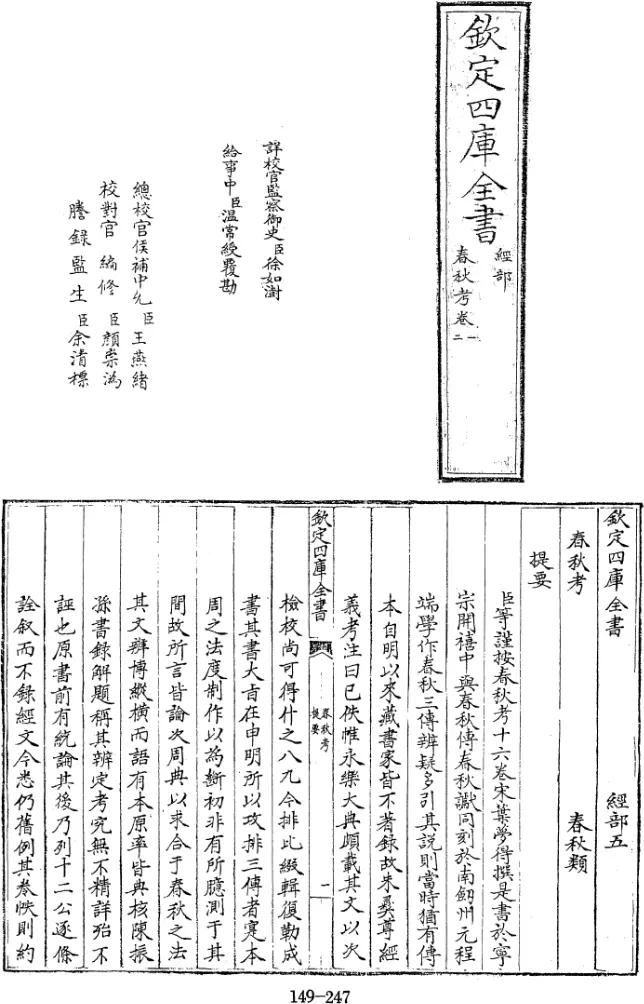 欽定四庫全書
經部
春秋考卷
一
二
詳校官監察御史臣徐如澍
給事中臣溫常綬覆勘
總校官候補中允臣王燕緒
校對官編修臣顏崇溈
謄錄監生臣余清標
欽定四庫全書 經部五
春秋考 春秋類
提要
臣等謹按春秋考十六卷宋葉夢得撰是書於寧
宗開禧中與春秋傳春秋讞同刻於南劍州元程
端學作春秋三傳辨疑多引其說則當時猶有傳
本自明以來藏書家皆不著錄故朱彝尊經
義考注曰已佚惟永樂大典頗載其文以次
欽定四庫全書
春秋考
提要
一
檢校尚可得什之八九今排比綴輯復勒成
書其書大旨在申明所以攻排三傳者寔本
周之法度制作以為斷初非有所臆測于其
間故所言皆論次周典以求合于春秋之法
其文辨博縱橫而語有本原率皆典核陳振
孫書錄解題稱其辨定考究無不精詳殆不
誣也原書前有統論其後乃列十二公逐條
詮叙而不錄經文今悉仍舊例其卷帙則約
149-247